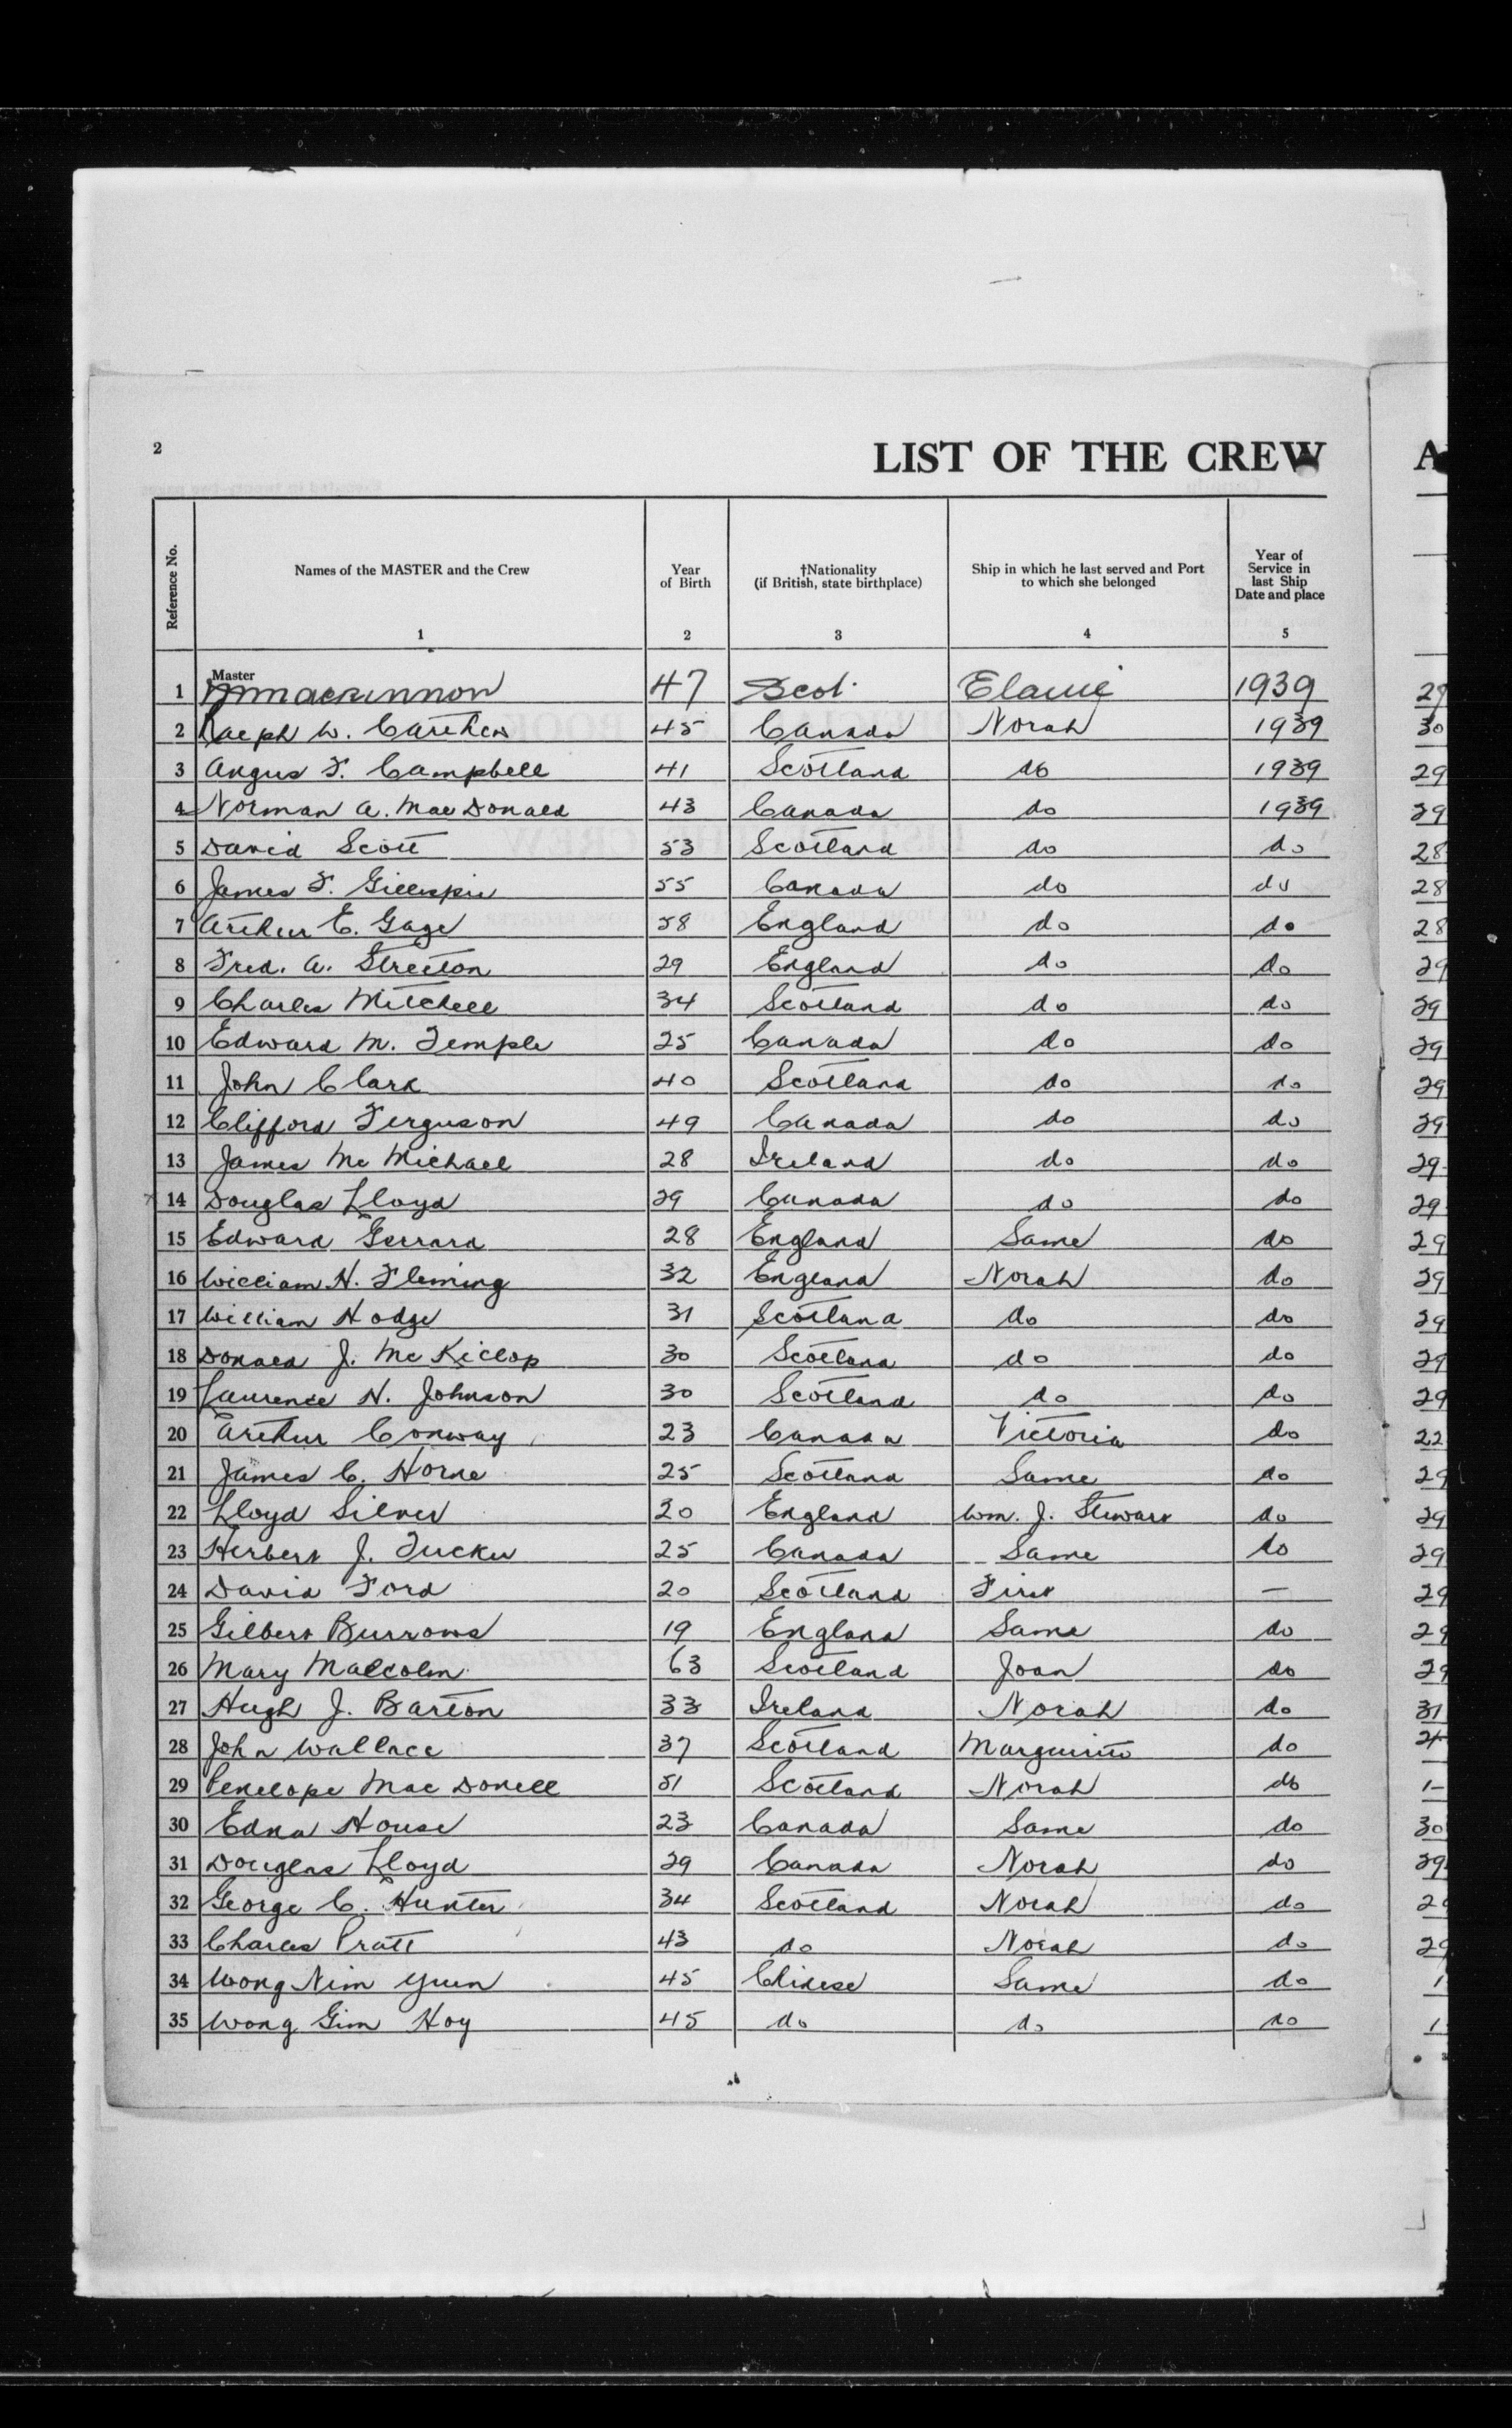 2
LIST OF THE CREW
A
Reference No.
Names of the MASTER and the Crew
Year of Birth
†Nationality (if British, state birthplace)
Ship in which he last served and Port to which she belonged
Year of Service in last Ship Date and place
1 2 3 4 5
Master
1 MacKinnon 47 Scot. Elaine 1939 29
2 Ralph W. Carthew 45 Canada Norah 1939 30
3 Angus F. Campbell 41 Scotland do 1939 29
4 Norman A. MacDonald 43 Canada do 1939 29
5 David Scott 53 Scotland do do 28
6 James F. Gillespie 55 Canada do do 28
7 Arthur E. Gage 58 England do do 28
8 Fred. A. Streeton 29 England do do 29
9 Charles Mitchell 34 Scotland do do 29
10 Edward M. Temple 25 Canada do do 29
11 John Clark 40 Scotland do do 29
12 Clifford Ferguson 49 Canada do do 29
13 James McMichael 28 Ireland do do 29
14 Douglas Lloyd 29 Canada do do 29
15 Edward Gerrard 28 England Same do 29
16 William H. Fleming 32 England Norah do 29
17 William Hodge 31 Scotland do do 29
18 Donald J. McKillop 30 Scotland do do 29
19 Laurence H. Johnson 30 Scotland do do 29
20 Arthur Conway 23 Canada Victoria do 22
21 James C. Horne 25 Scotland Same do 29
22 Lloyd Silver 20 England Wm. J. Stewart do 29
23 Herbert J. Tucker 25 Canada Same do 29
24 David Ford 20 Scotland First — 29
25 Gilbert Burrows 19 England Same do 29
26 Mary Malcolm 63 Scotland Joan do 29
27 Hugh J. Barton 33 Ireland Norah do 31
28 John Wallace 37 Scotland Marguerite do
29 Penelope MacDonell 51 Scotland Norah do 1
30 Edna House 23 Canada Same do 30
31 Douglas Lloyd 29 Canada Norah do 29
32 George C. Hunter 34 Scotland Norah do 29
33 Charles Pratt 43 do Norah do 29
34 Wong Nim Yuen 45 Chinese Same do 1
35 Wong Gim Hoy 45 do do do 1